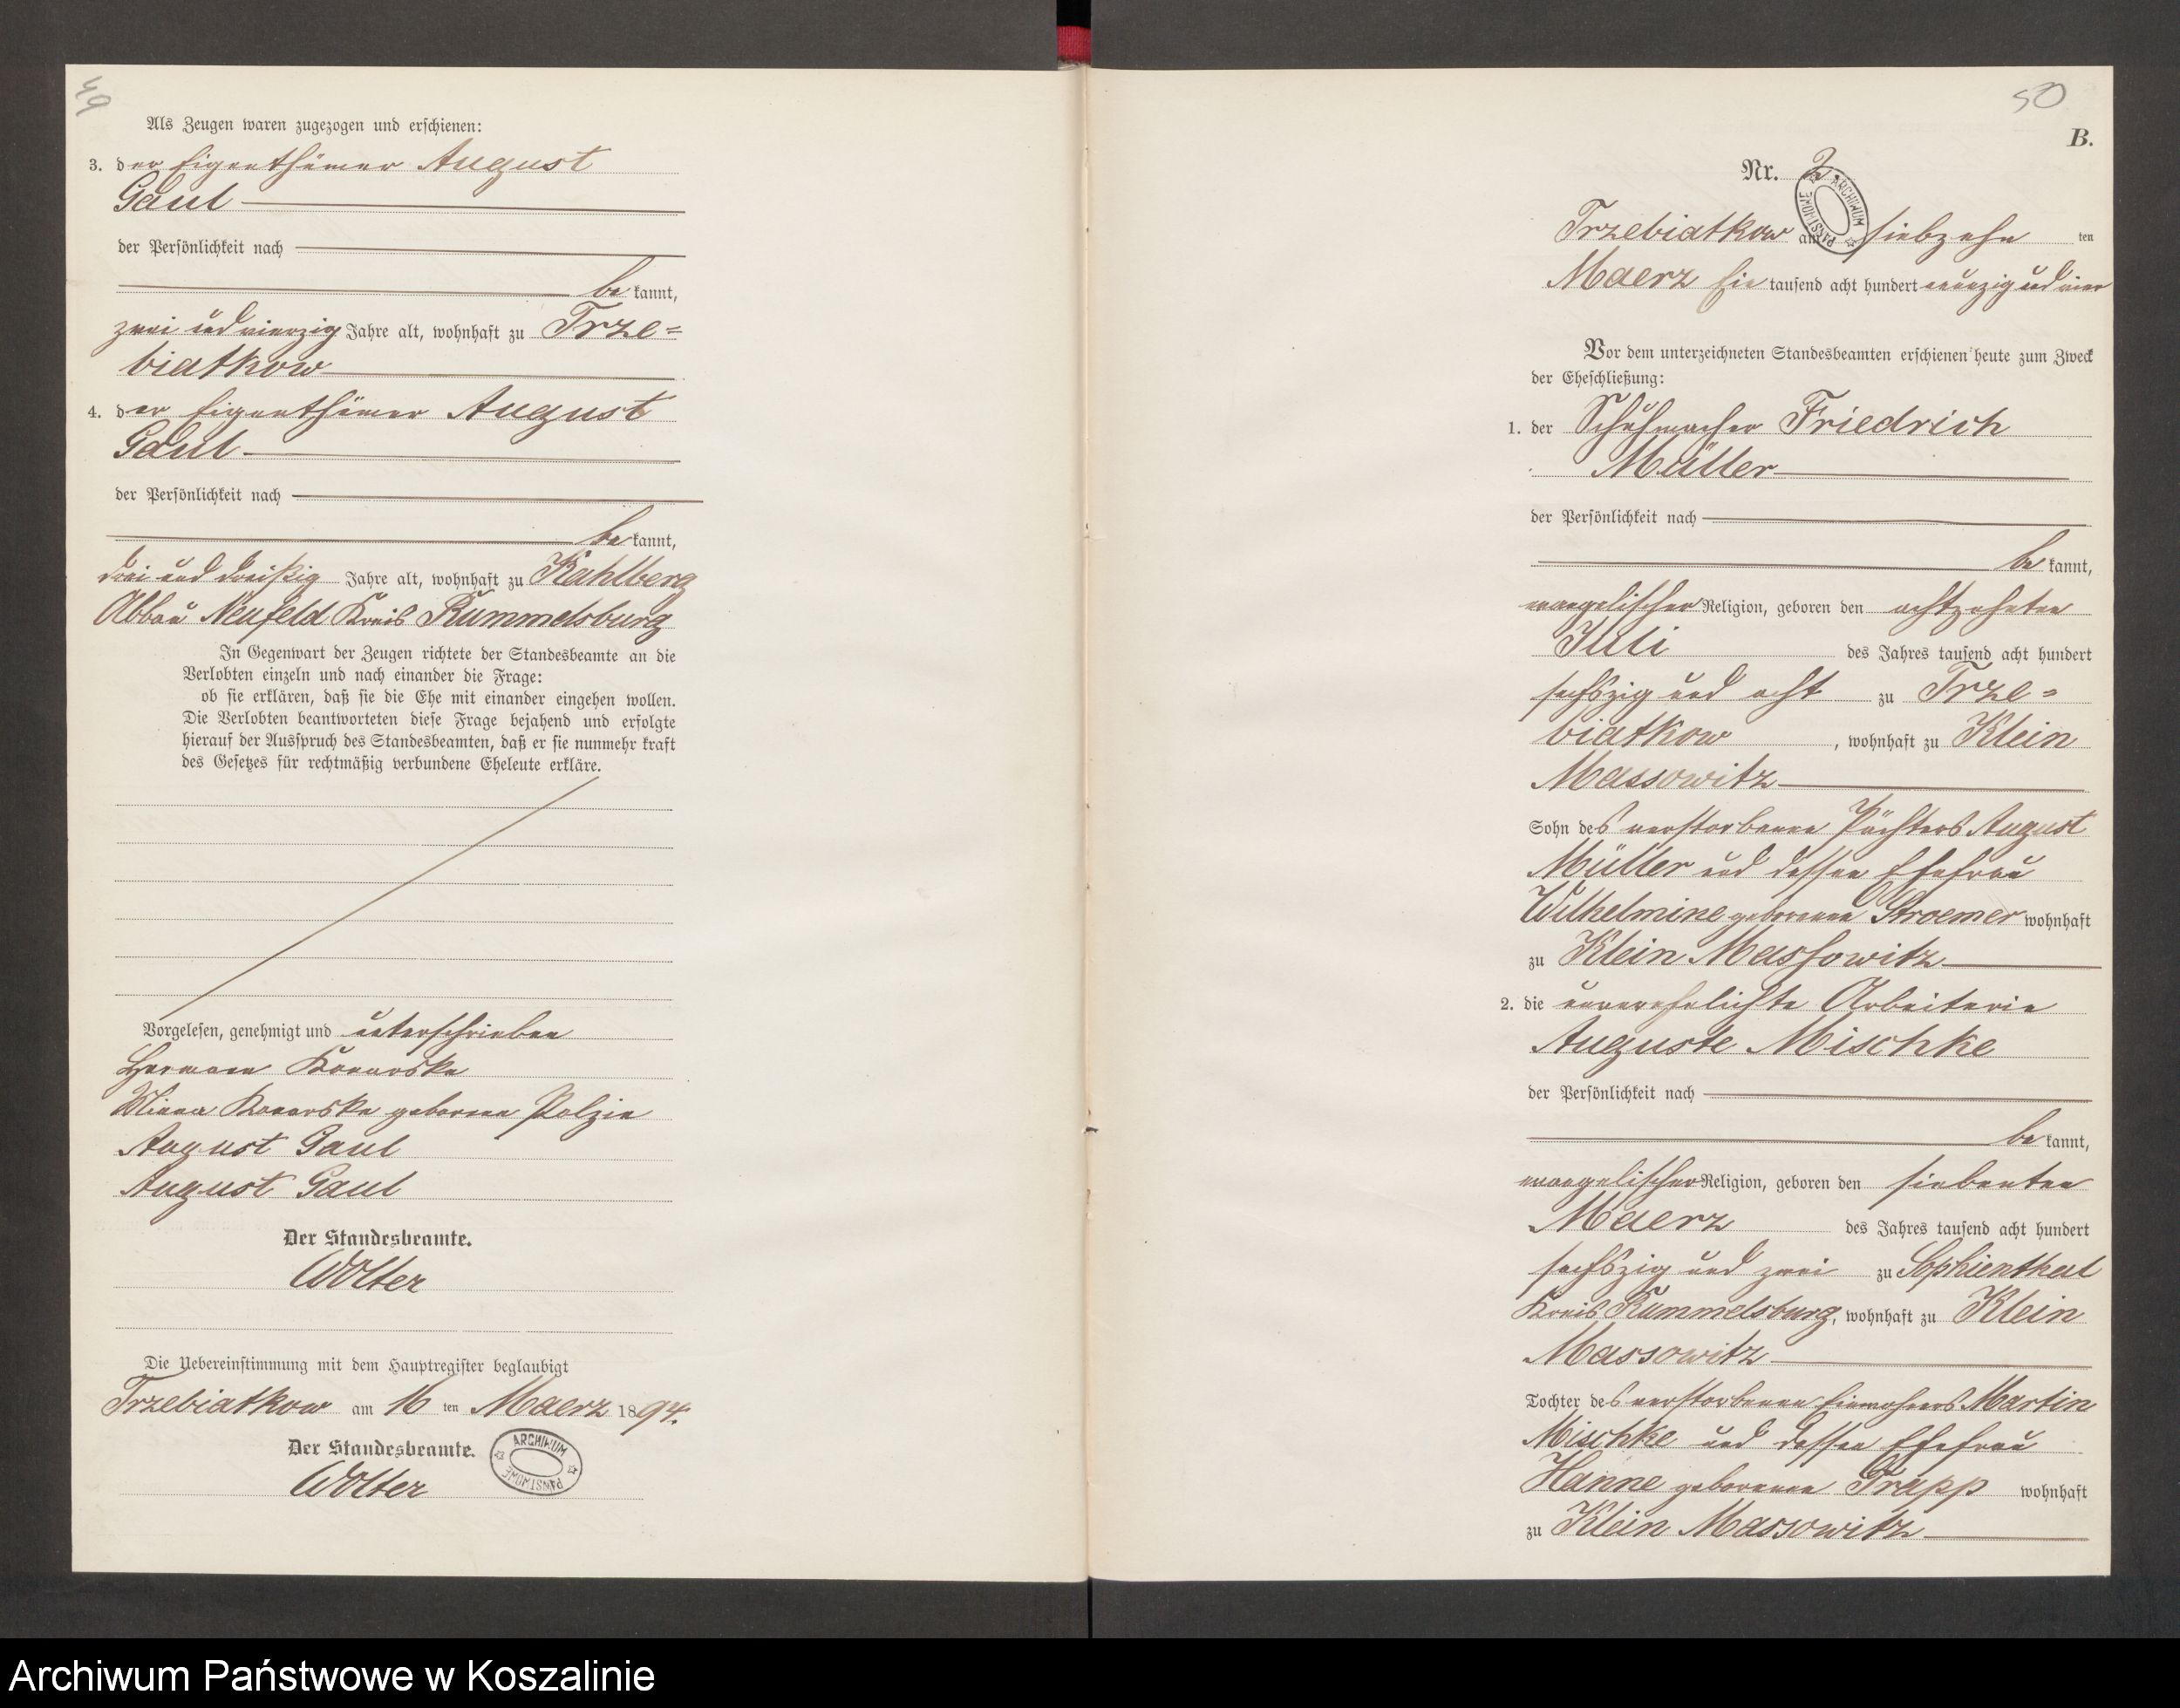 49
Als Zeugen waren zugezogen und erschienen:
3. der Eigenthümer August
Gaul
der Persönlichkeit nach
bekannt,
zwei und vierzig Jahre alt, wohnhaft zu Trze=
biatkow
4. der Eigenthümer August
Gaul
der Persönlichkeit nach
bekannt,
drei und dreißig Jahre alt, wohnhaft zu Kahlberg
Abbau Neufeld Kreis Rummelsburg
In Gegenwart der Zeugen richtete der Standesbeamte an die
Verlobten einzeln und nach einander die Frage:
ob sie erklären, daß sie die Ehe mit einander eingehen wollen.
Die Verlobten beantworteten diese Frage bejahend und erfolgte
hierauf der Ausspruch des Standesbeamten, daß er sie nunmehr kraft
des Gesetzes für rechtmäßig verbundene Eheleute erkläre.
Vorgelesen, genehmigt und unterschrieben
Hermann
Minna geborene Polzin
August Gaul
August Gaul
Der Standesbeamte.
Wolter
Die Uebereinstimmung mit dem Hauptregister beglaubigt
Trzebiatkow am 16 ten Maerz 1894.
Der Standesbeamte.
Wolter
ARCHIWUM PAŃSTWOWE
50
B.
Nr. 2.
ARCHIWUM PAŃSTWOWE
Trzebiatkow am siebzehn ten
Maerz Ein tausend acht hundert neunzig und vier
Vor dem unterzeichneten Standesbeamten erschienen heute zum Zweck
der Eheschließung:
1. der Schuhmacher Friedrich
Müller
der Persönlichkeit nach
bekannt,
evangelischer Religion, geboren den achtzehnten
Juli des Jahres tausend acht hundert
sechszig und acht zu Trze=
biatkow, wohnhaft zu Klein
Massowitz
Sohn des verstorbenen Pächters August
Müller und dessen Ehefrau
Wilhelmine geborenen Stroemer wohnhaft
zu Klein Massowitz
2. die unverehelichte Arbeiterin
Auguste Mischke
der Persönlichkeit nach
bekannt,
evangelischer Religion, geboren den siebenten
Maerz des Jahres tausend acht hundert
sechszig und zwei zu Sophienthal
Kreis Rummelsburg, wohnhaft zu Klein
Massowitz
Tochter des verstorbenen Einwohners Martin
Mischke und dessen Ehefrau
Hanne geborenen Trapp wohnhaft
zu Klein Massowitz
Archiwum Państwowe w Koszalinie